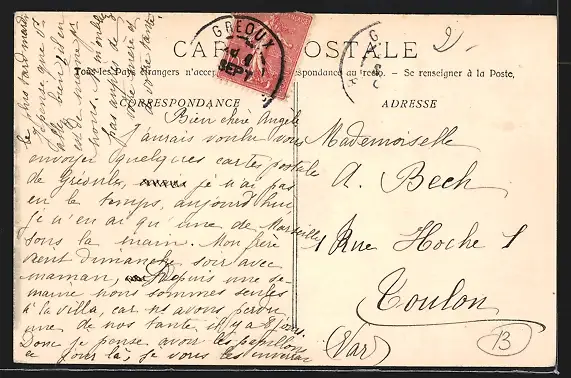 CARTE POSTALE
Tous les Pays étrangers n'acceptent correspondance au recto. — Se renseigner à la Poste,
CORRESPONDANCE
ADRESSE
GREOUX
SEPT
Bien chère Angèle
J'aurais voulu vous
envoyer quelques cartes postale
de Gréoulx, je n'ai pas
eu le temps, aujourd'hui
je n'en ai qu'une de Marseille
sous la main. Mon père
vient dimanche soir avec
maman, Depuis une se-
maine nous sommes seules
à la villa, car ns avons perdu
une de nos tante il y a 8 jours.
Donc je pense avoir les papillons
à jour là, je vous les enverrai
le plus tard mardi.
Je pense que
va bien
nous.
bas auprès de
votre mère et
votre tante.
Mademoiselle
A. Bech
1 Rue Hoche 1
Toulon
(Var)
B